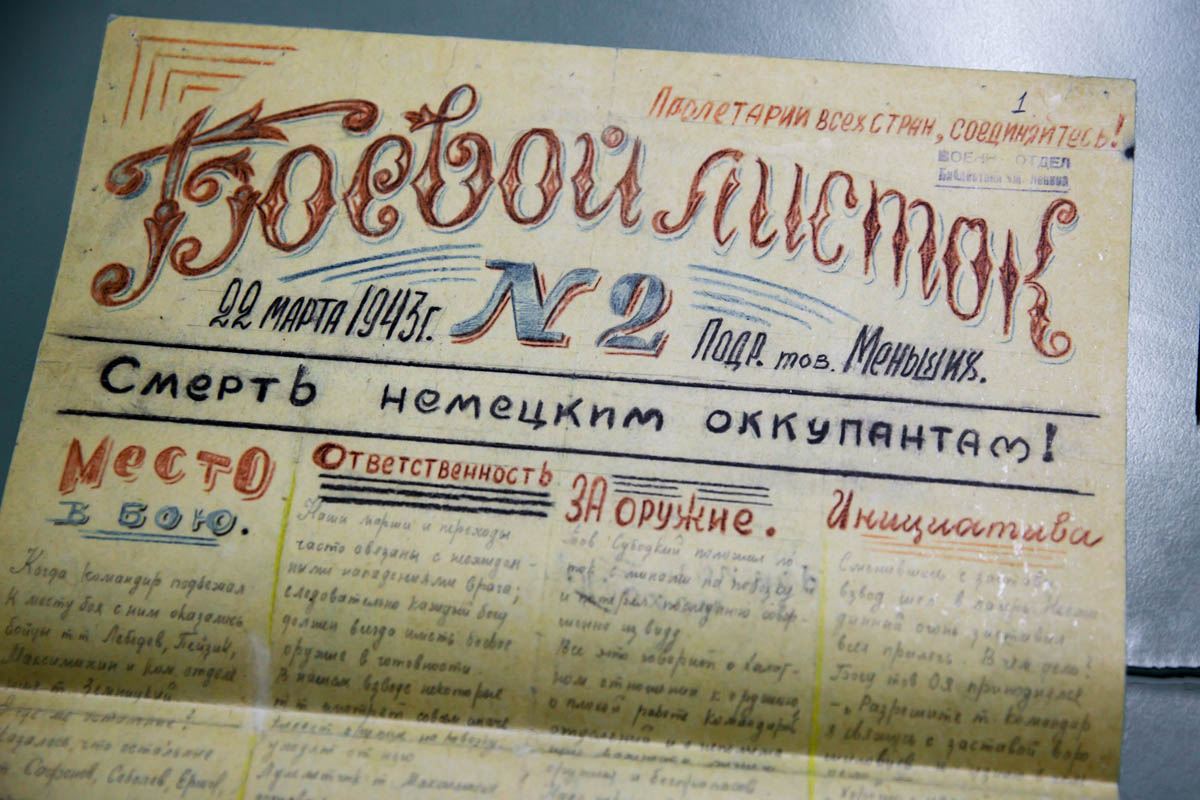 1
Пролетарии всех стран, соединяйтесь!
ВОЕНН. ОТДЕЛ
Библиотеки им. Ленина
Боевой листок
N 2
22 марта 1943 г.
Подр. тов. Меньших.
Смерть немецким оккупантам!
Место
в бою.
Когда командир подбежал
к месту боя с ним оказались
бойцы т.т. Лебедев,
Максимихин и ком. отделе
Казалось, что остальные
т. Сафонов, Соболев,
Ответственность
Наши марши и переходы
часто связаны с неожидан-
ными нападениями врага;
следовательно каждый боец
должен всегда иметь боевое
оружие в готовности.
В нашем взводе некоторые
т.т. смотрят совсем иначе
уходят от нею
За оружие.
Тов Субоцкий положил ло
ток с минами на повозку
и потерял последнюю совер-
шенно из виду
Все это говорит о халат-
ном отношении к оружию
о плохой работе командира
отделений
оружия и боеприпасов
Инициатива
Сменившись с заставы
взвод шел в лагерь Неожи
данный огонь заставил
всех прилечь. В чем дело?
Боец тов ОЯ приподнялся
-„Разрешите т. командир
я свяжусь с заставой